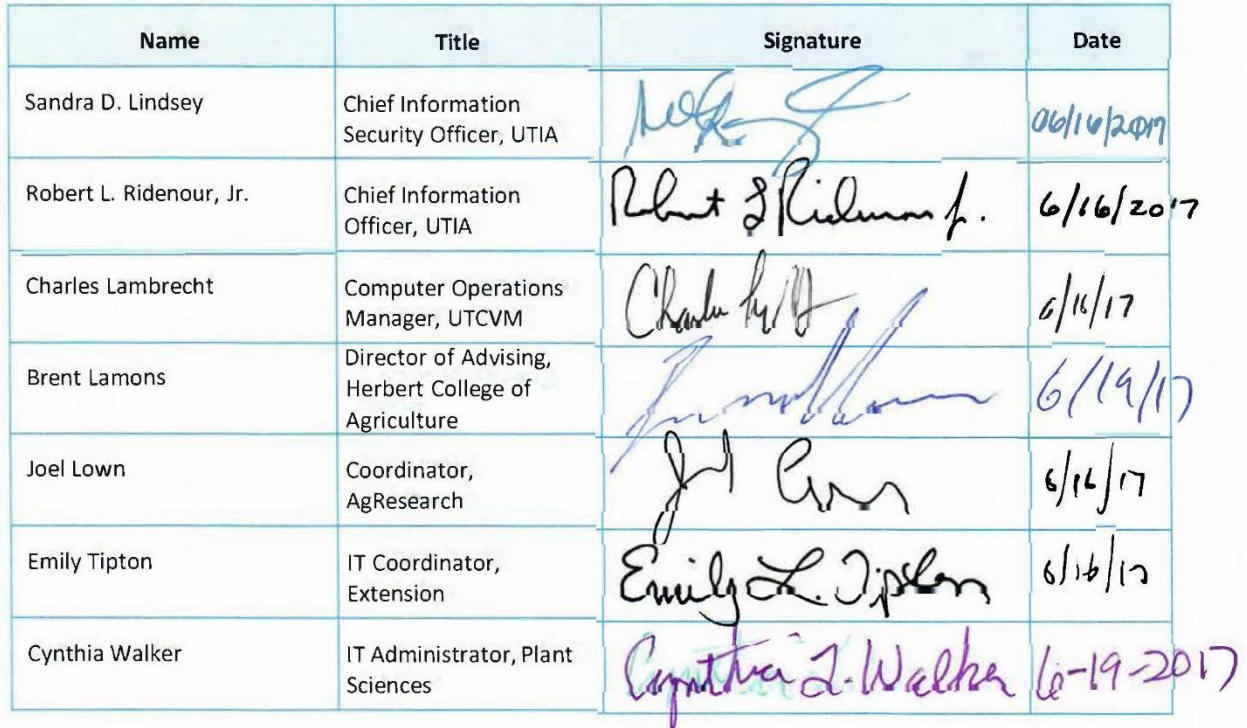 Name Title Signature Date
Sandra D. Lindsey Chief Information
Security Officer, UTIA 06/16/2017
Robert L. Ridenour, Jr. Chief Information
Officer, UTIA Robert L Ridenour Jr. 6/16/2017
Charles Lambrecht Computer Operations
Manager, UTCVM 6/16/17
Brent Lamons Director of Advising,
Herbert College of
Agriculture 6/19/17
Joel Lown Coordinator,
AgResearch 6/16/17
Emily Tipton IT Coordinator,
Extension Emily L. Tipton 6/16/17
Cynthia Walker IT Administrator, Plant
Sciences Cynthia L. Walker 6-19-2017